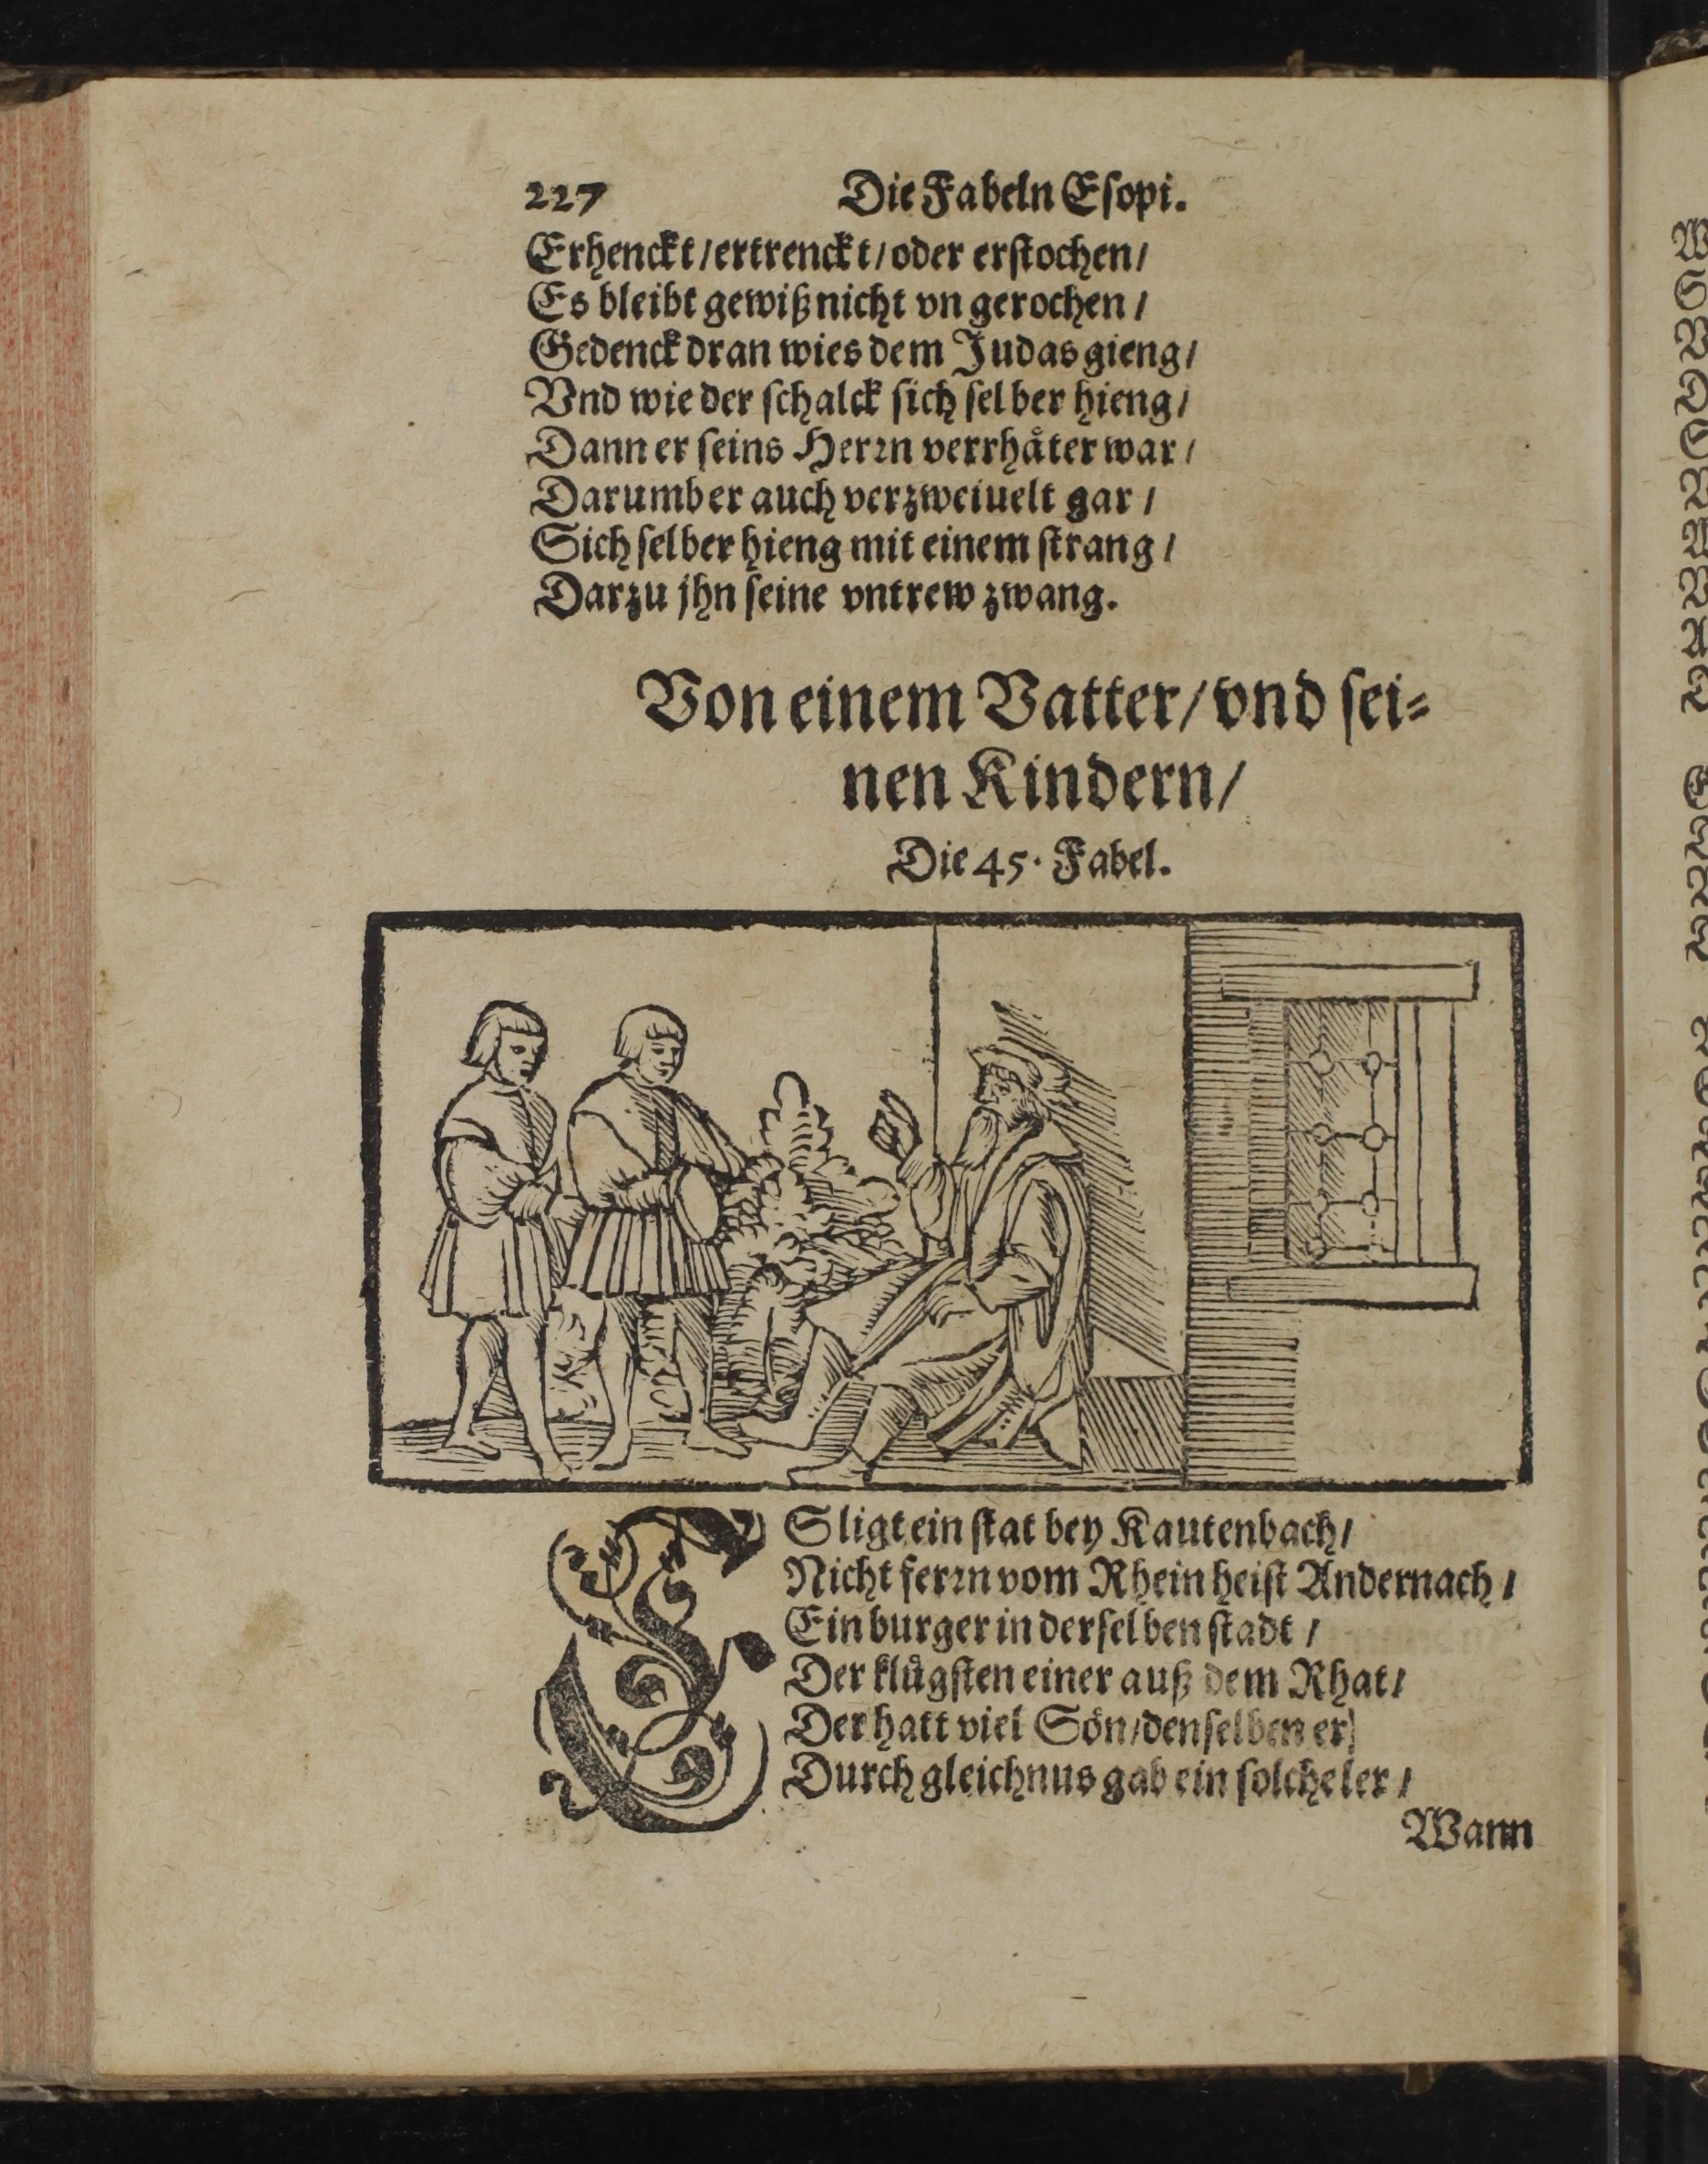 227 Die Fabeln Eſopi.
Erhenckt/ertrenckt/oder erſtochen/
Es bleibt gewiß nicht vngerochen/
Gedenck dran wies dem Judas gieng/
Vnd wie der ſchalck ſich ſelber hieng/
Dann er ſeins Herꝛn verrhåter war/
Darumb er auch verzweiuelt gar/
Sich ſelber hieng mit einem ſtrang/
Darzu jhn ſeine vntrew zwang.
Von einem Vatter/vnd ſei⸗
nen Kindern/
Die 45. Fabel.
ES ligt ein ſtat bey Kautenbach/
Nicht ferꝛn vom Rhein heiſt Andernach/
Ein burger in derſelben ſtadt/
Der klůgſten einer auß dem Rhat/
Der hatt viel Sön/denſelben er)
Durch gleichnus gab ein ſolche ler/
Wann